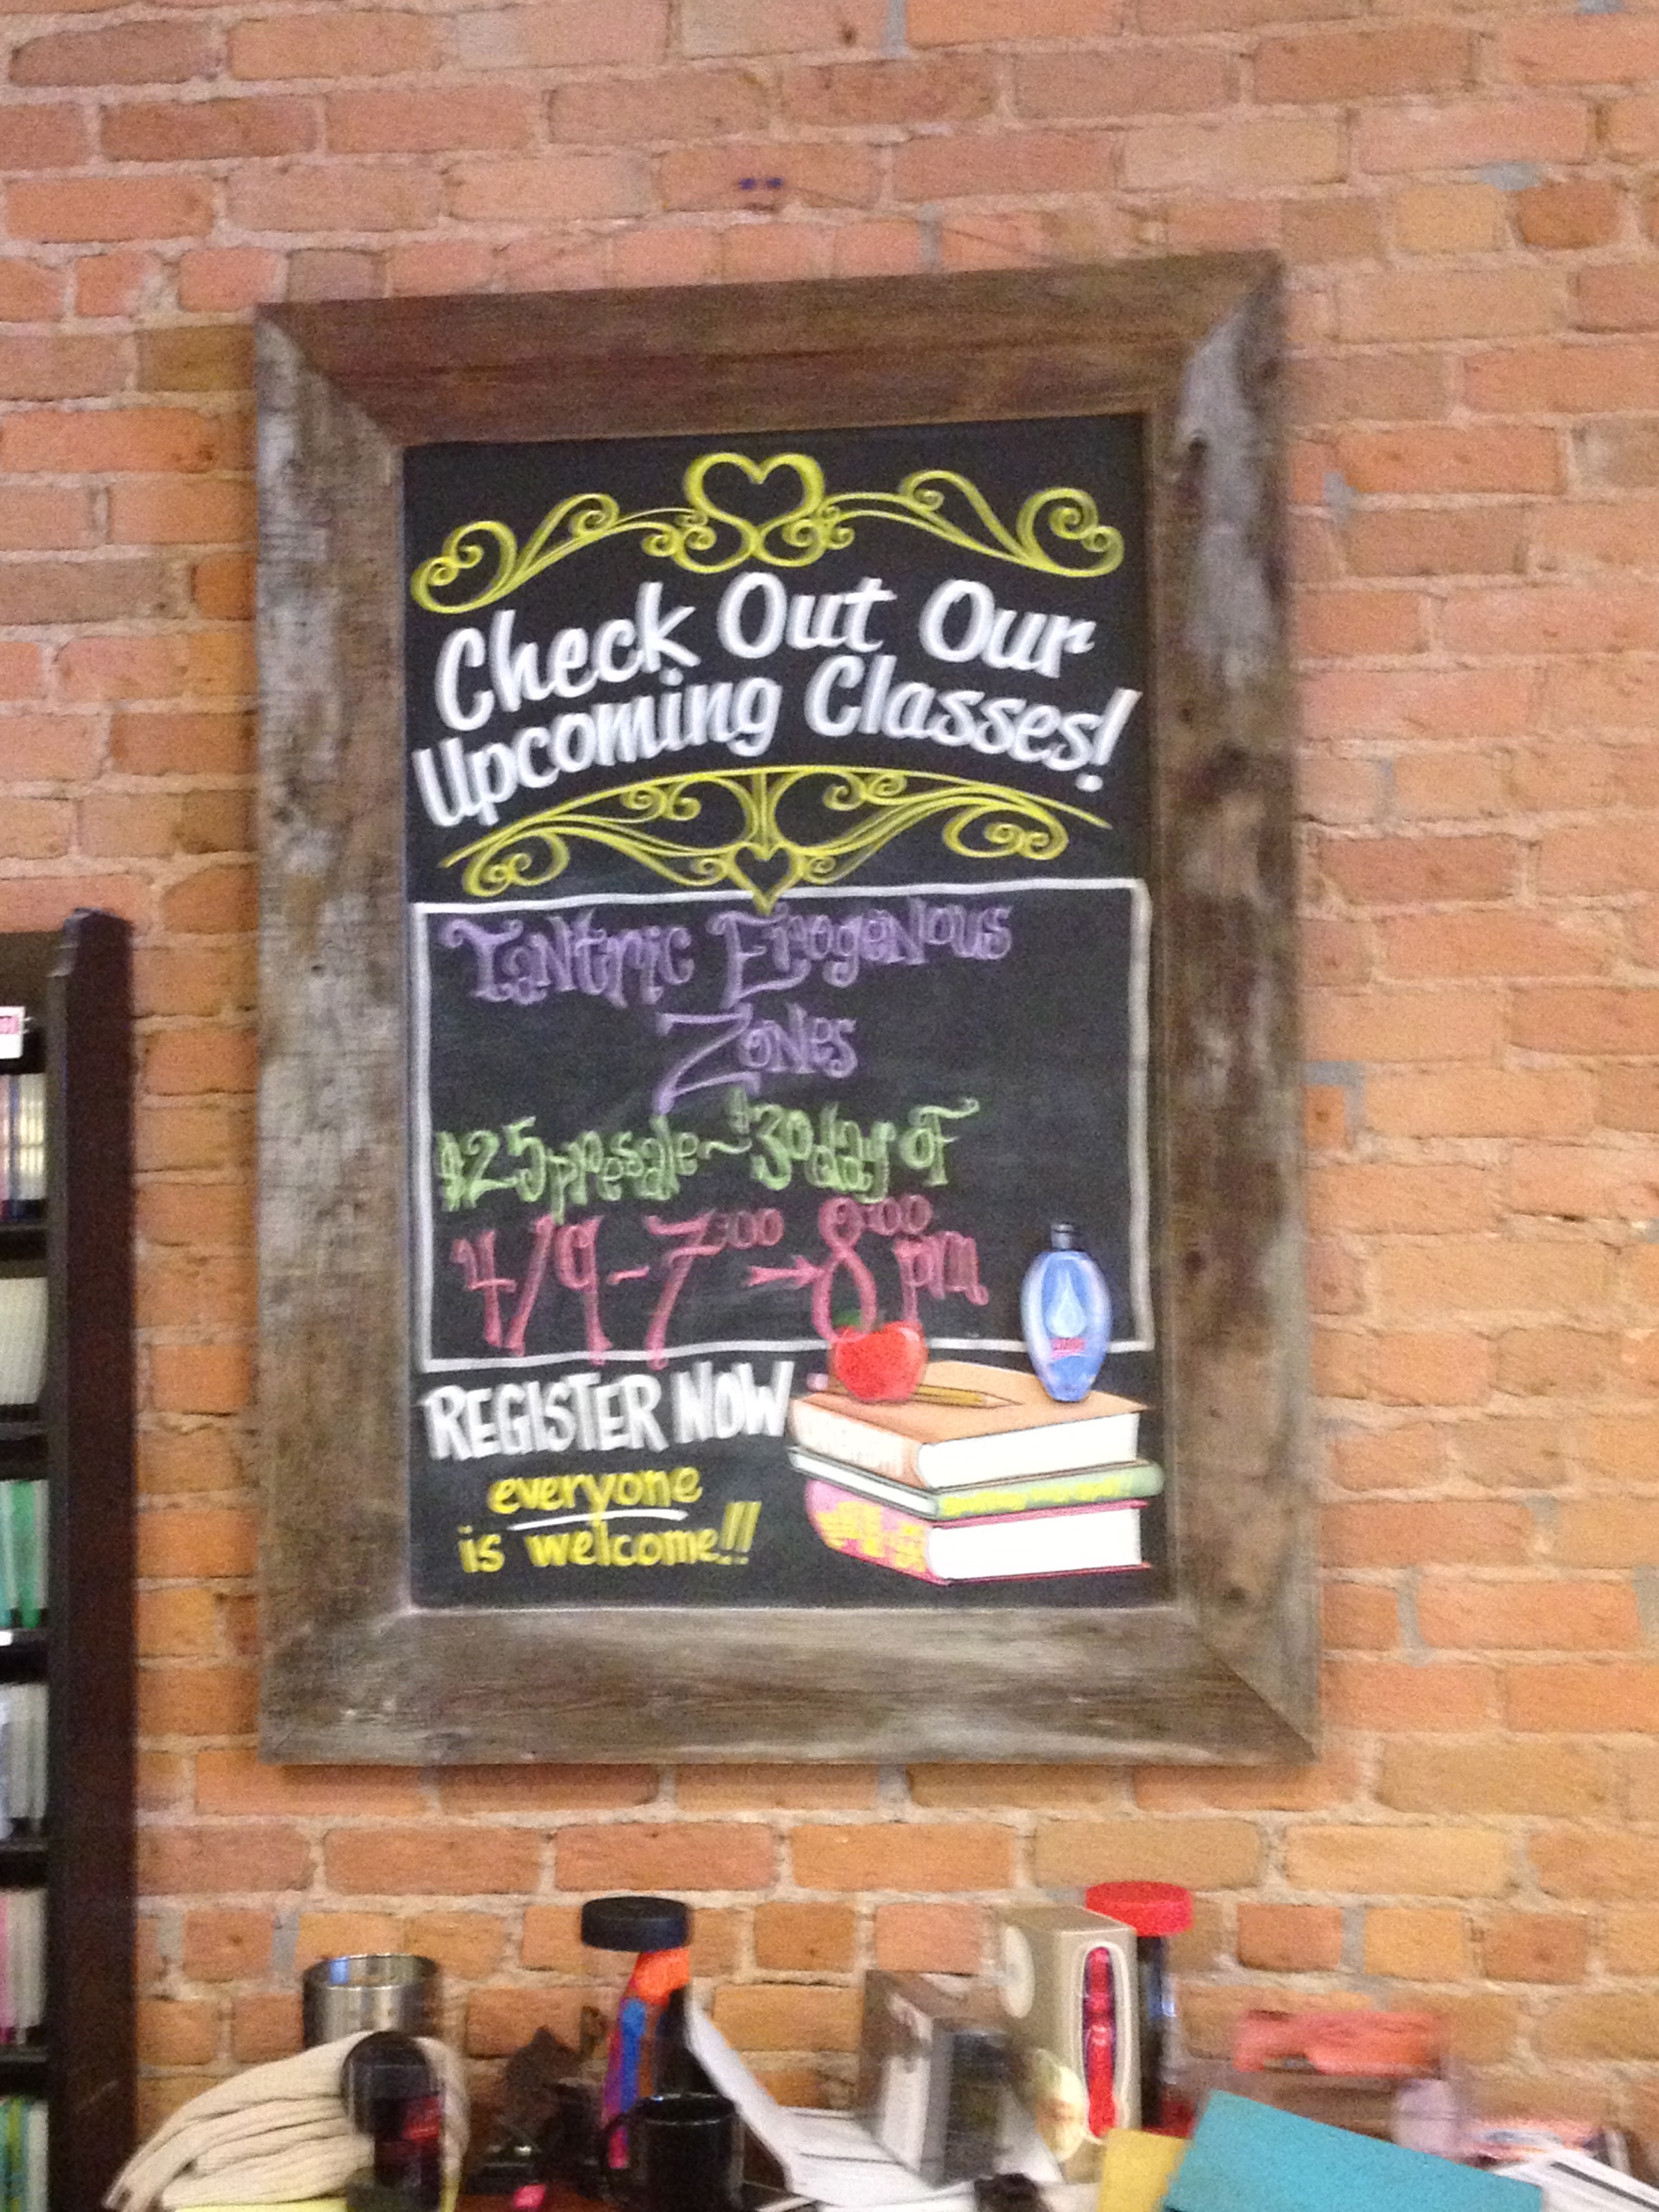 Check Out Our
Upcoming Classes!
Tantric Erogenous
Zones
$25 presale ~ $30 day of
4/9 - 7:00 → 8:00 pm
REGISTER NOW
everyone
is welcome!!